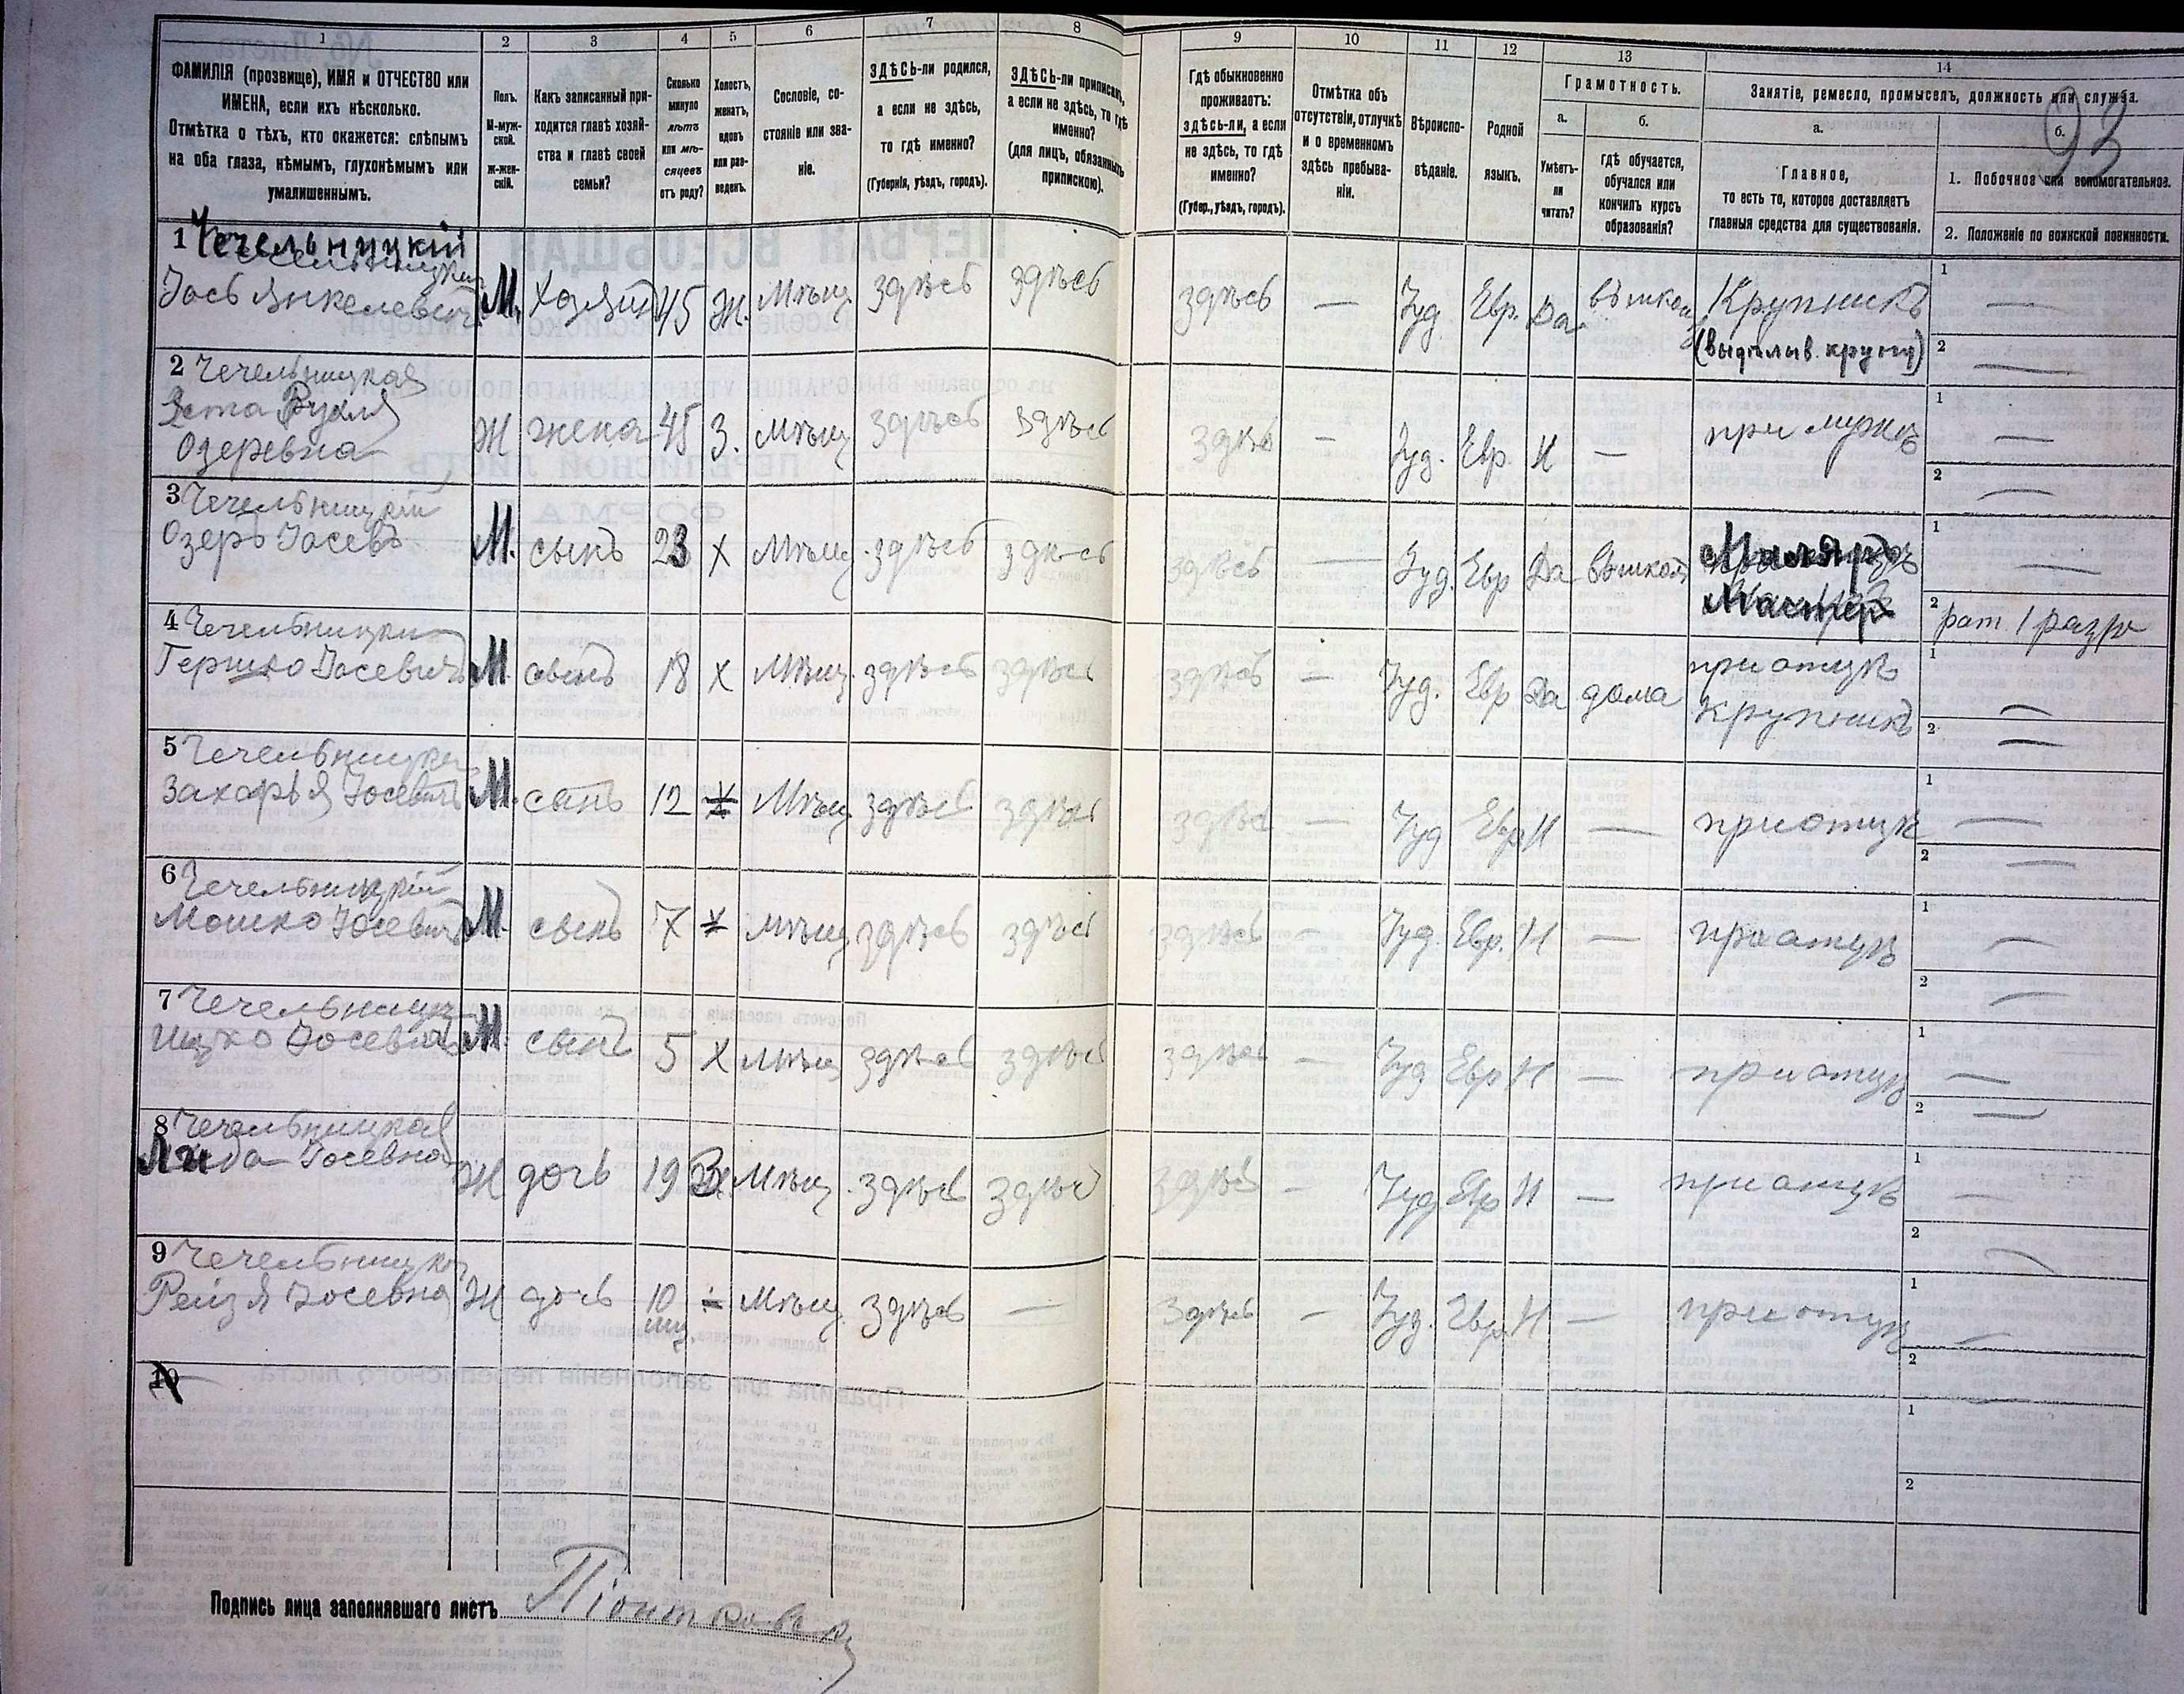 93
1
2
3
4
5
6
7
8
9
10
11
12
13
14
ФАМИЛІЯ (прозвище), ИМЯ и ОТЧЕСТВО или
ИМЕНА, если ихъ нѣсколько.
Отмѣтка о тѣхъ, кто окажется: слѣпымъ
на оба глаза, нѣмымъ, глухонѣмымъ или
умалишеннымъ.
Полъ.
М-муж-
ской.
ж-жен-
скій.
Какъ записанный при-
ходится главѣ хозяй-
ства и главѣ своей
семьи?
Сколько
минуло
лѣтъ
или мѣ-
сяцевъ
отъ роду?
Холостъ,
женатъ,
вдовъ
или раз-
веденъ.
Сословіе, со-
стояніе или зва-
ніе.
ЗДѢСЬ-ли родился,
а если не здѣсь,
то гдѣ именно?
(Губернія, уѣздъ, городъ).
ЗДѢСЬ-ли приписанъ,
а если не здѣсь, то гдѣ
именно?
(для лицъ, обязанныхъ
припискою).
Гдѣ обыкновенно
проживаетъ:
здѣсь-ли, а если
не здѣсь, то гдѣ
именно?
(Губер., уѣздъ, городъ).
Отмѣтка объ
отсутствіи, отлучкѣ
и о временномъ
здѣсь пребыва-
ніи.
Вѣроиспо-
вѣданіе.
Родной
языкъ.
Грамотность.
а.
Умѣетъ-
ли
читать?
б.
гдѣ обучается,
обучался или
кончилъ курсъ
образованія?
Занятіе, ремесло, промыселъ, должность или служба.
а.
Главное,
то есть то, которое доставляетъ
главныя средства для существованія.
б.
1. Побочное или вспомогательное.
2. Положеніе по воинской повинности.
1 Чечельницкій
Іось Янкелевичъ М. Хозяинъ 45 Ж. Мѣщ. здѣсь здѣсь здѣсь — Іуд. Евр. Да въ школѣ Крупникъ 1 —
(выдѣлыв. крупу) 2 —
2 Чечельницкая
Эста Рухля
Озеровна Ж жена 45 З. мѣщ здѣсь здѣсь здѣсь — Іуд. Евр. Н — при мужѣ 1 —
2 —
3 Чечельницкій
Озеръ Іосевъ М. сынъ 23 Х Мѣщ. здѣсь здѣсь здѣсь — Іуд. Евр Да въ школѣ Маляръ 1 —
Мастер 2 рат. 1 разр
4 Чечельницкий
Гершко Іосевичъ М сынъ 18 Х Мѣщ. здѣсь здѣсь здѣсь — Іуд. Евр Да дома при отцѣ 1 —
крупникъ 2 —
5 Чечельницкій
Захарья Іосевичъ М. сынъ 12 Х Мѣщ. здѣсь здѣсь здѣсь — Іуд Евр Н — при отцѣ 1 —
2 —
6 Чечельницкій
Мошко Іосевичъ М. сынъ 7 Х мѣщ здѣсь здѣсь здѣсь — Іуд. Евр. Н — при отцѣ 1 —
2 —
7 Чечельницкій
Ицко Іосевичъ М. сынъ 5 Х Мѣщ здѣсь здѣсь здѣсь — Іуд Евр Н — при отцѣ 1 —
2 —
8 Чечельницкая
Іосевна Ж дочь 19 Мѣщ. здѣсь здѣсь здѣсь — Іуд Евр Н — при отцѣ 1 —
2 —
9 Чечельницкая
Рейзя Іосевна Ж дочь 10 – Мѣщ. здѣсь — здѣсь — Іуд. Евр. Н — при отцѣ 1 —
мц 2 —
10 1
2
Подпись лица заполнявшаго листъ